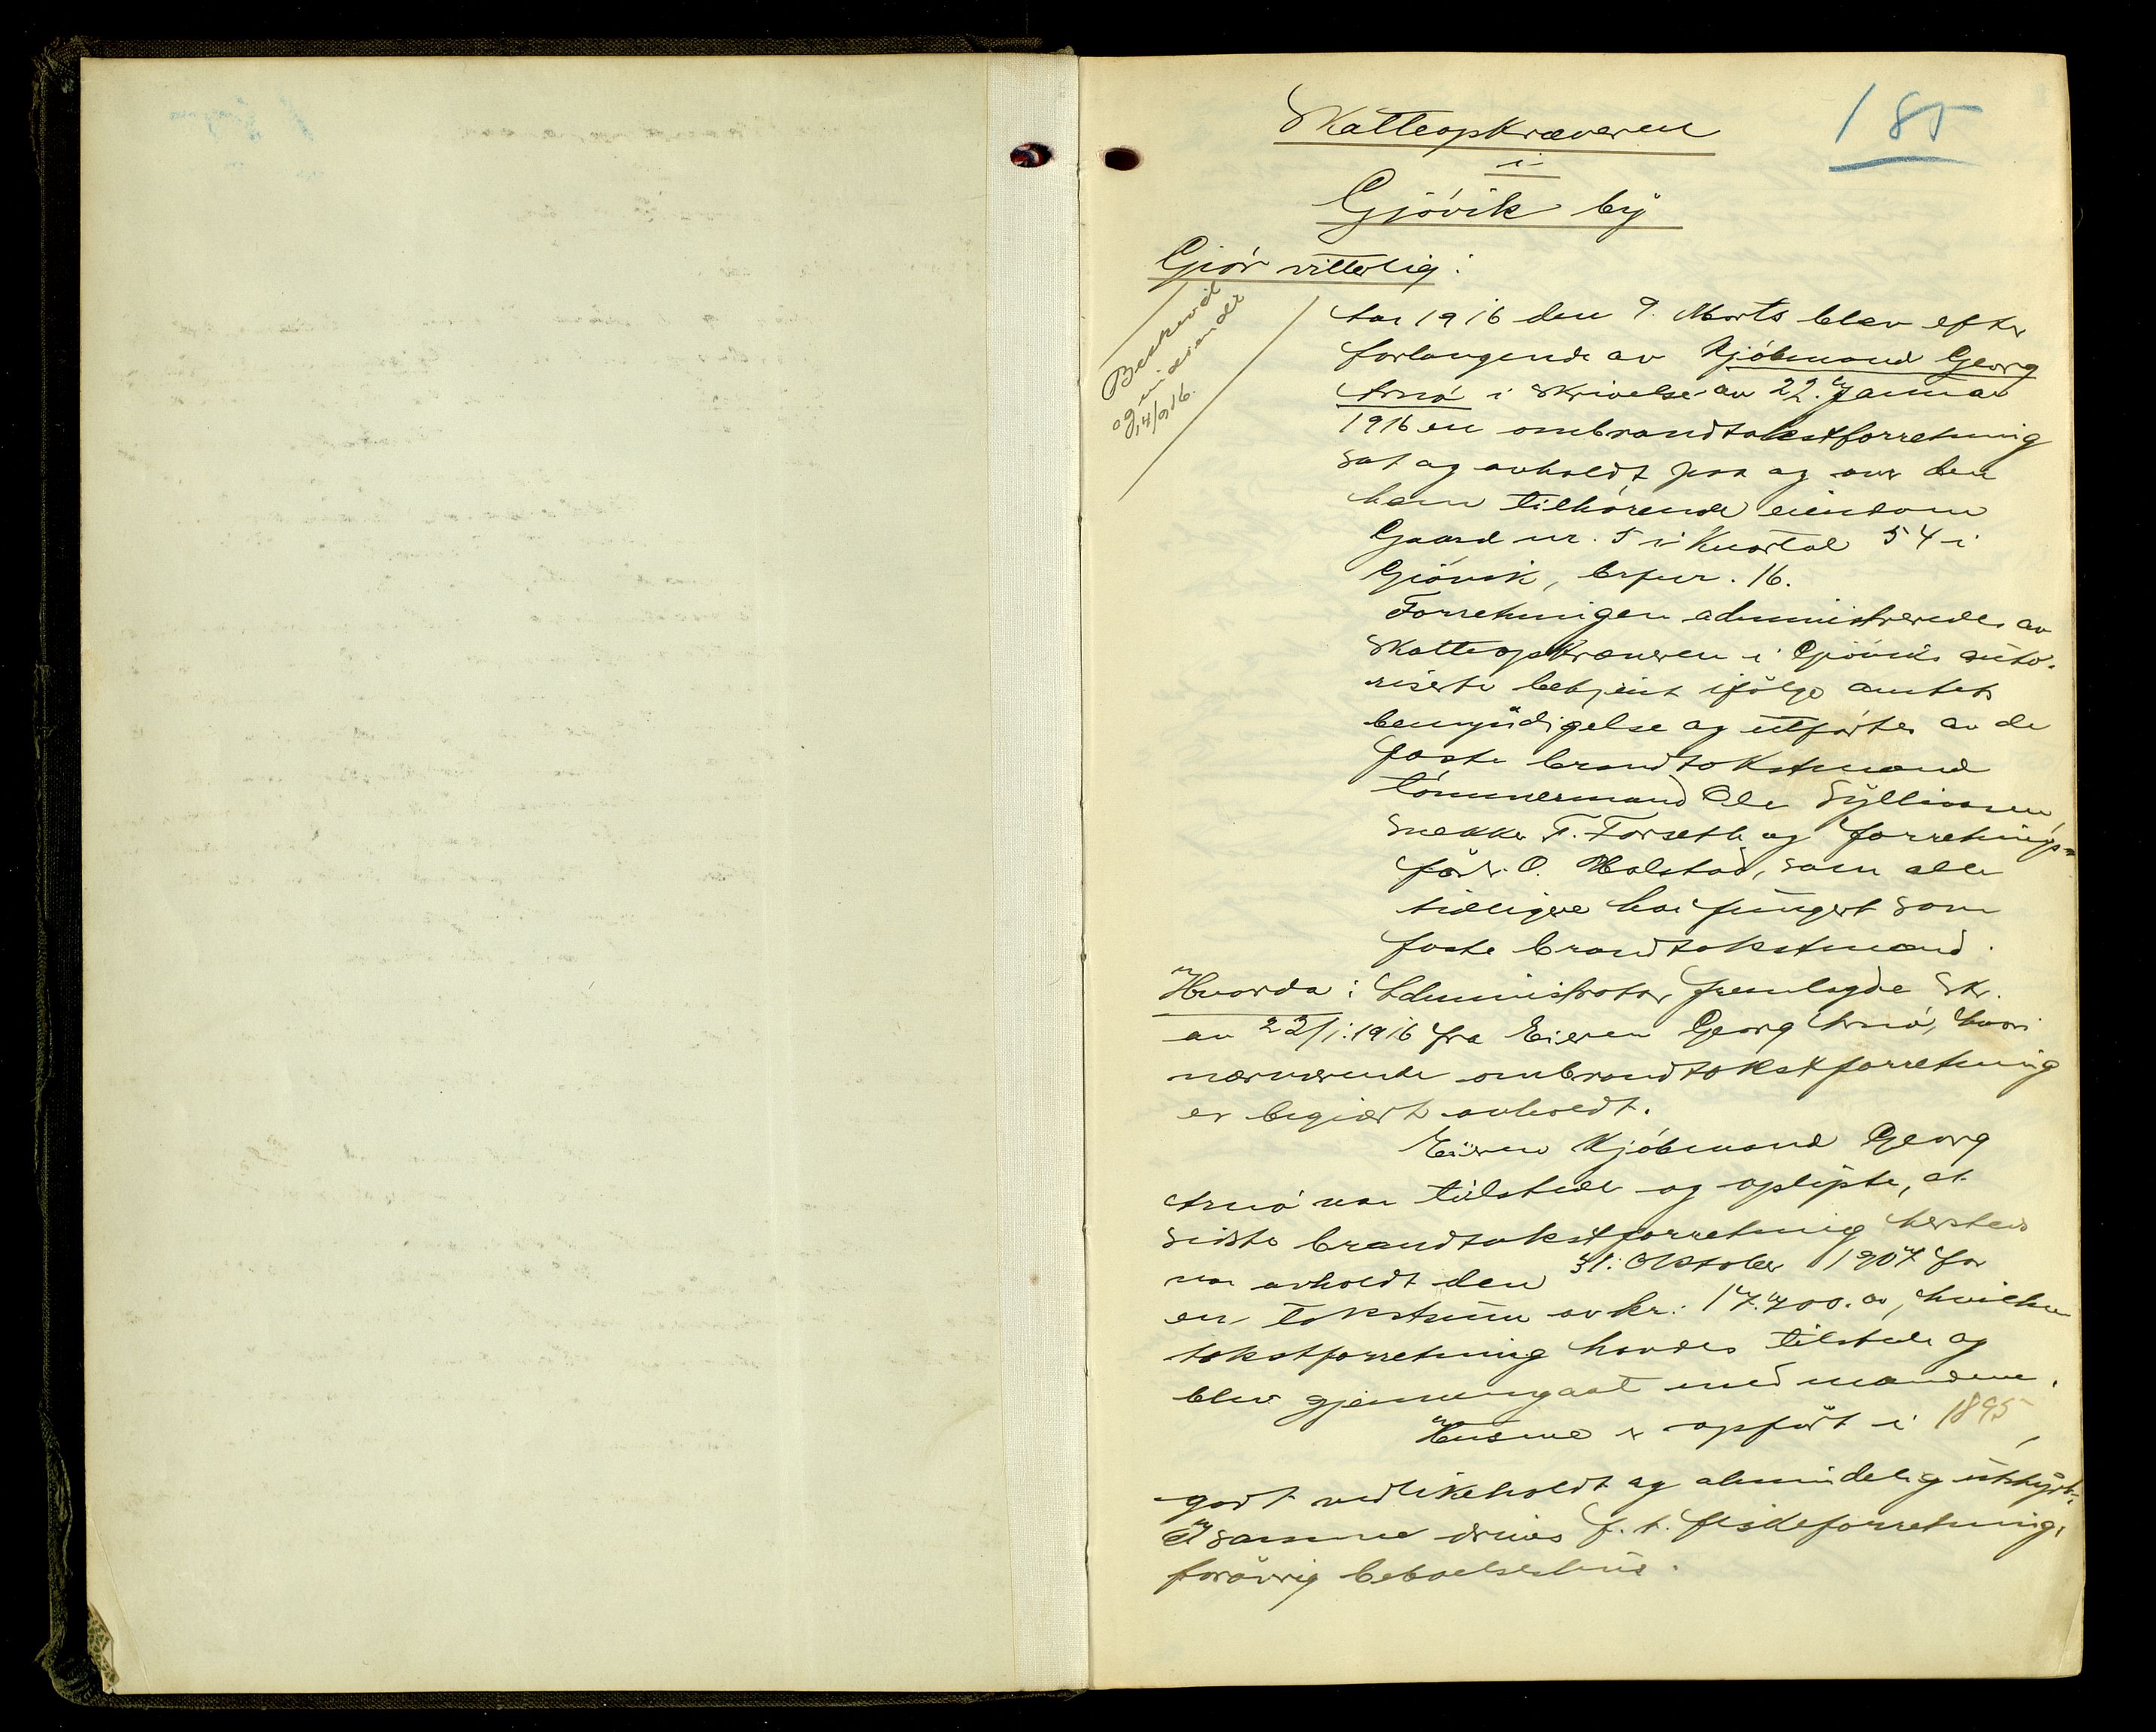 185
Skatteopkræveren
i
Gjövik by
Gjör vitterlig:
Beskrevet
og
14/9 16.
Aar 1916 den 9. Marts blev efter
forlangende av Kjöbmand Georg
Arnö i skrivelse av 22. Januar
1916 en ombrandtakstforretning
sat og avholdt paa og over den
ham tilhörende eiendom
Gaard nr. 5 i Kvartal 54 i
Gjövik, brfnr. 16.
Forretningen administreredes av
Skatteopkræveren i Gjöviks auto-
riserte betjent ifölge amtets
bemyndigelse og utförtes av de
faste brandtakstmænd
tömmermand Ole Sylliaasen,
Snekker T. Forseth og forretnings-
förer O. Holstad, som alle
tidligere har fungert som
faste brandtakstmænd.
Hvorda: Administrator fremlagde Skr.
av 22/1. 1916 fra Eieren Georg Arnö, hvori
nærværende ombrandtakstforretning
er begjært avholdt.
Eieren Kjöbmand Georg
Arnö var tilstede og oplyste, at
sidste brandtakstforretning hersteds
var avholdt den 31. Oktober 1907 for
en takstsum av kr. 17.700.00, hvilken
takstforretning havdes tilstede og
blev gjennemgaat med mændene.
Husene er opfört i 1895,
godt vedlikeholdt og almindelig utstyrt.
I samme drives f. t. fiskeforretning,
forövrig beboelseshus.